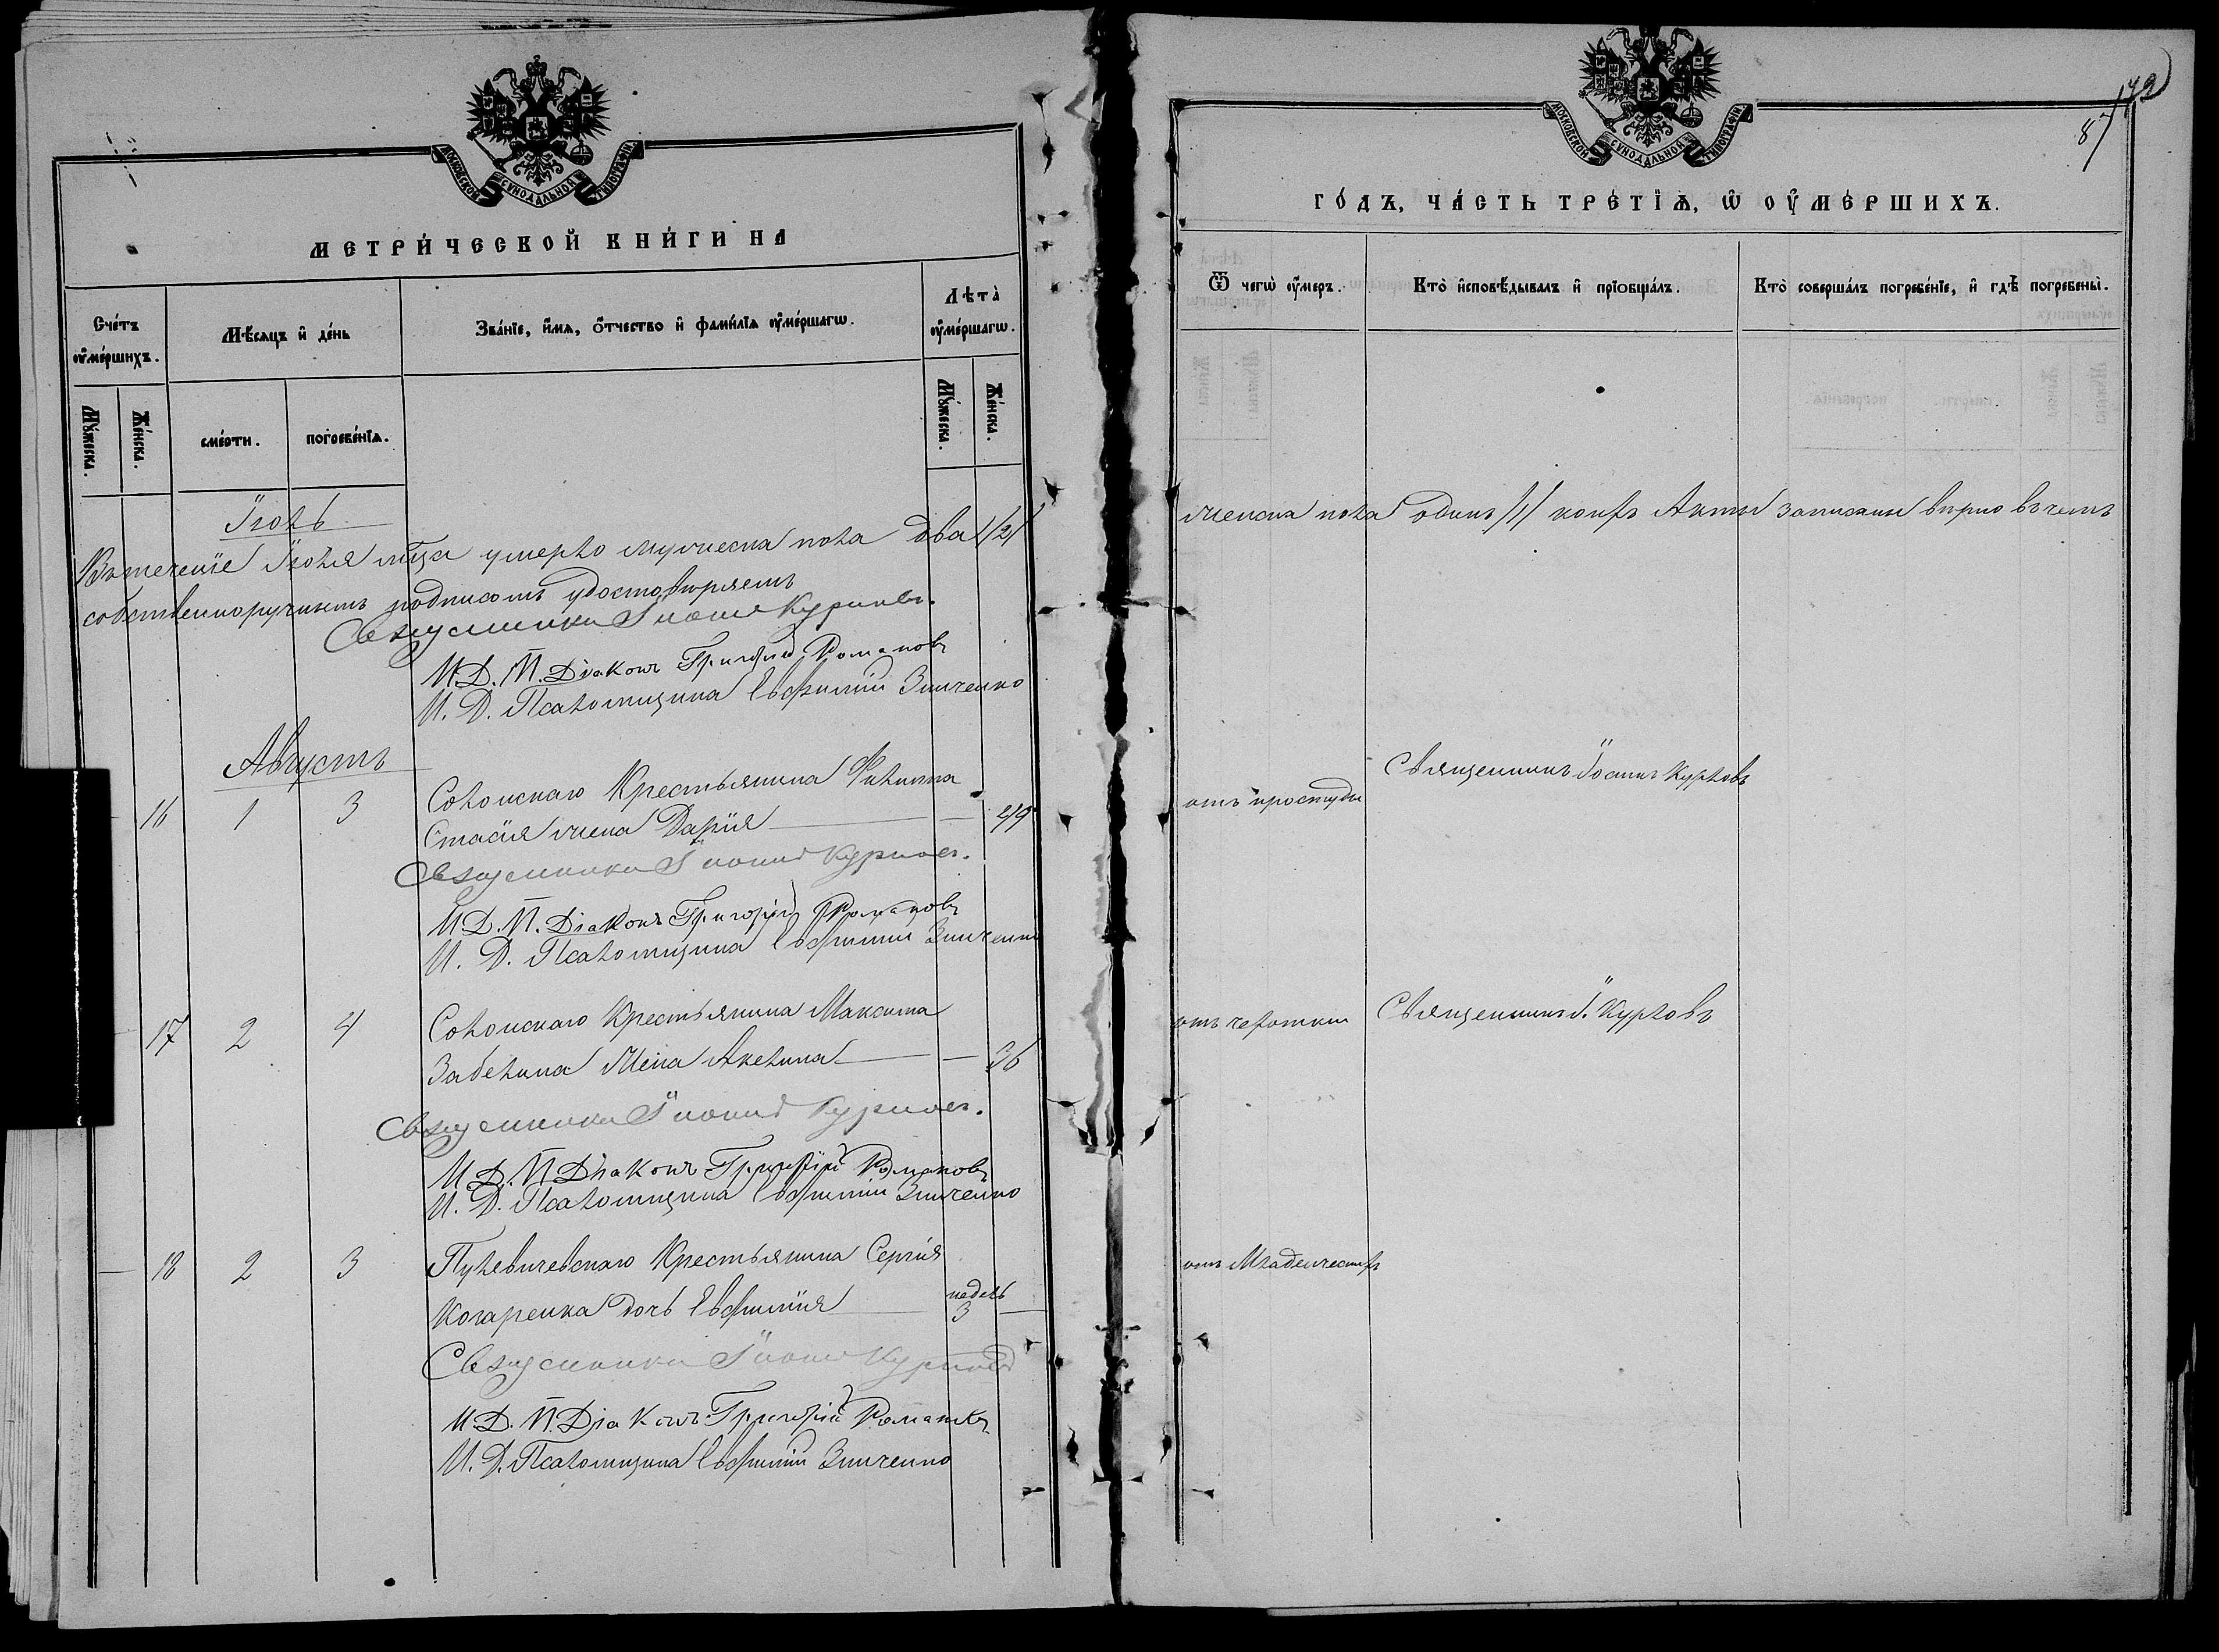 МОСКОВСКОЙ СѴНОДАЛЬНОЙ ТИПОГРАФІИ
МЕТРИ́ЧЕСКОЙ КНИ́ГИ НА
Сче́тъ ᲂу҆ме́ршихъ.
Мѣ́сѧцъ и҆ де́нь
Зва́нїе, и҆́мѧ, ѻ҆́тчество и҆ фами́лїѧ ᲂу҆ме́ршагѡ.
Лѣта̀ ᲂу҆ме́ршагѡ.
Мꙋ́жеска.
Же́нска.
сме́рти.
погребе́нїѧ.
Мꙋ́жеска.
Же́нска.
Іюль
Въ теченіе Іюля мѣсяца умерло мужеска пола два /2/
собственноручнымъ подписомъ удостовѣряемъ
Священникъ Іоаннъ Курловъ.
И.Д.П. Діаконъ Григорій Романовъ
И. Д. Псаломщика Евфимій Зинченко
Августъ
16 1 3 Крестьянина Филиппа
жена Дарія — — 49
Священникъ Іоаннъ Курловъ.
И.Д.П. Діаконъ Григорій Романовъ
И. Д. Псаломщика Евфимій Зинченко
17 2 4 Крестьянина Максима
Забелина жена Акелина — — 36
Священникъ Іоаннъ Курловъ.
И.Д.П. Діаконъ Григорій Романовъ
И. Д. Псаломщика Евфимій Зинченко
— 18 2 3 Крестьянина Сергія
дочь Евфимія — недель 3 —
Священникъ Іоаннъ Курловъ
И.Д.П. Діаконъ Григорій Романовъ
И. Д. Псаломщика Евфимій Зинченко
МОСКОВСКОЙ СѴНОДАЛЬНОЙ ТИПОГРАФІИ
87
ГО́ДЪ, ЧА́СТЬ ТРЕ́ТЇѦ, Ѡ҆ ОУ҆МЕ́РШИХЪ.
Ѿ чегѡ̀ ᲂу҆́меръ.
Кто̀ и҆сповѣ́дывалъ и҆ прїобща́лъ.
Кто̀ соверша́лъ погребе́нїе, и҆ гдѣ̀ погребены̀.
женска пола одинъ /1/ Акты записаны вѣрно въ чемъ
отъ простуды Священникъ Іоаннъ Курловъ
отъ чахотки Священникъ І. Курловъ
отъ